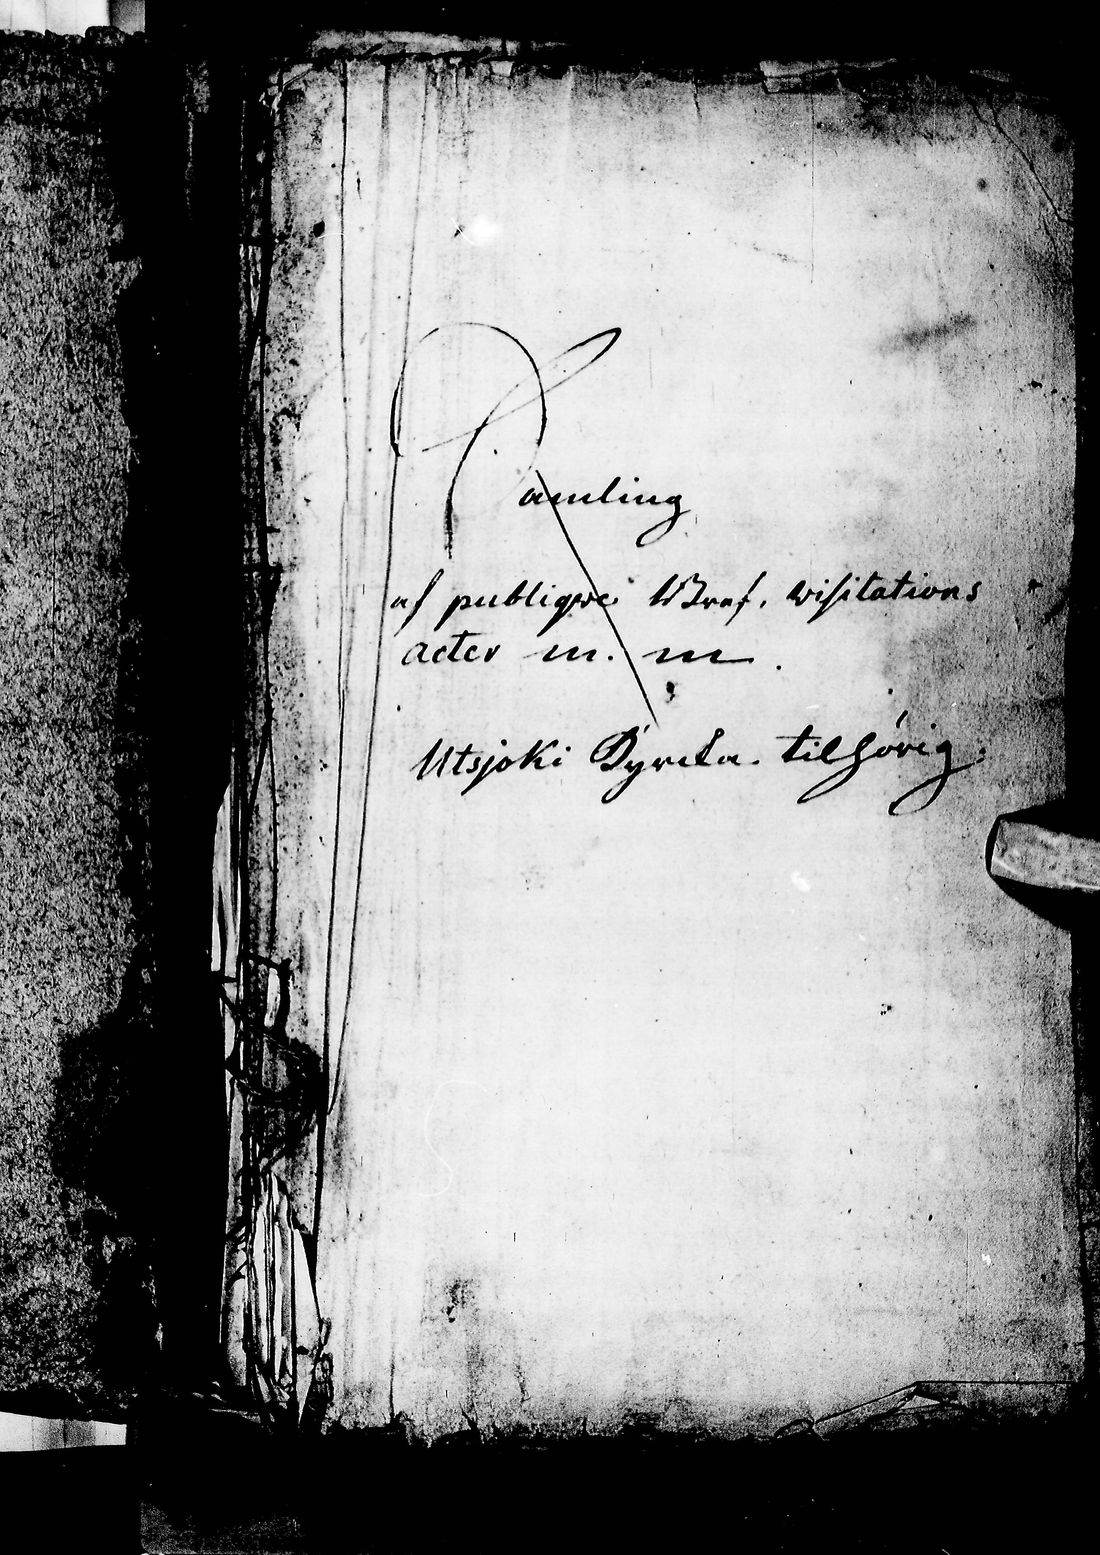 Samling
af publique Bref, visitations
acter m. m.
Utsjoki Kyrcka tilhörig.